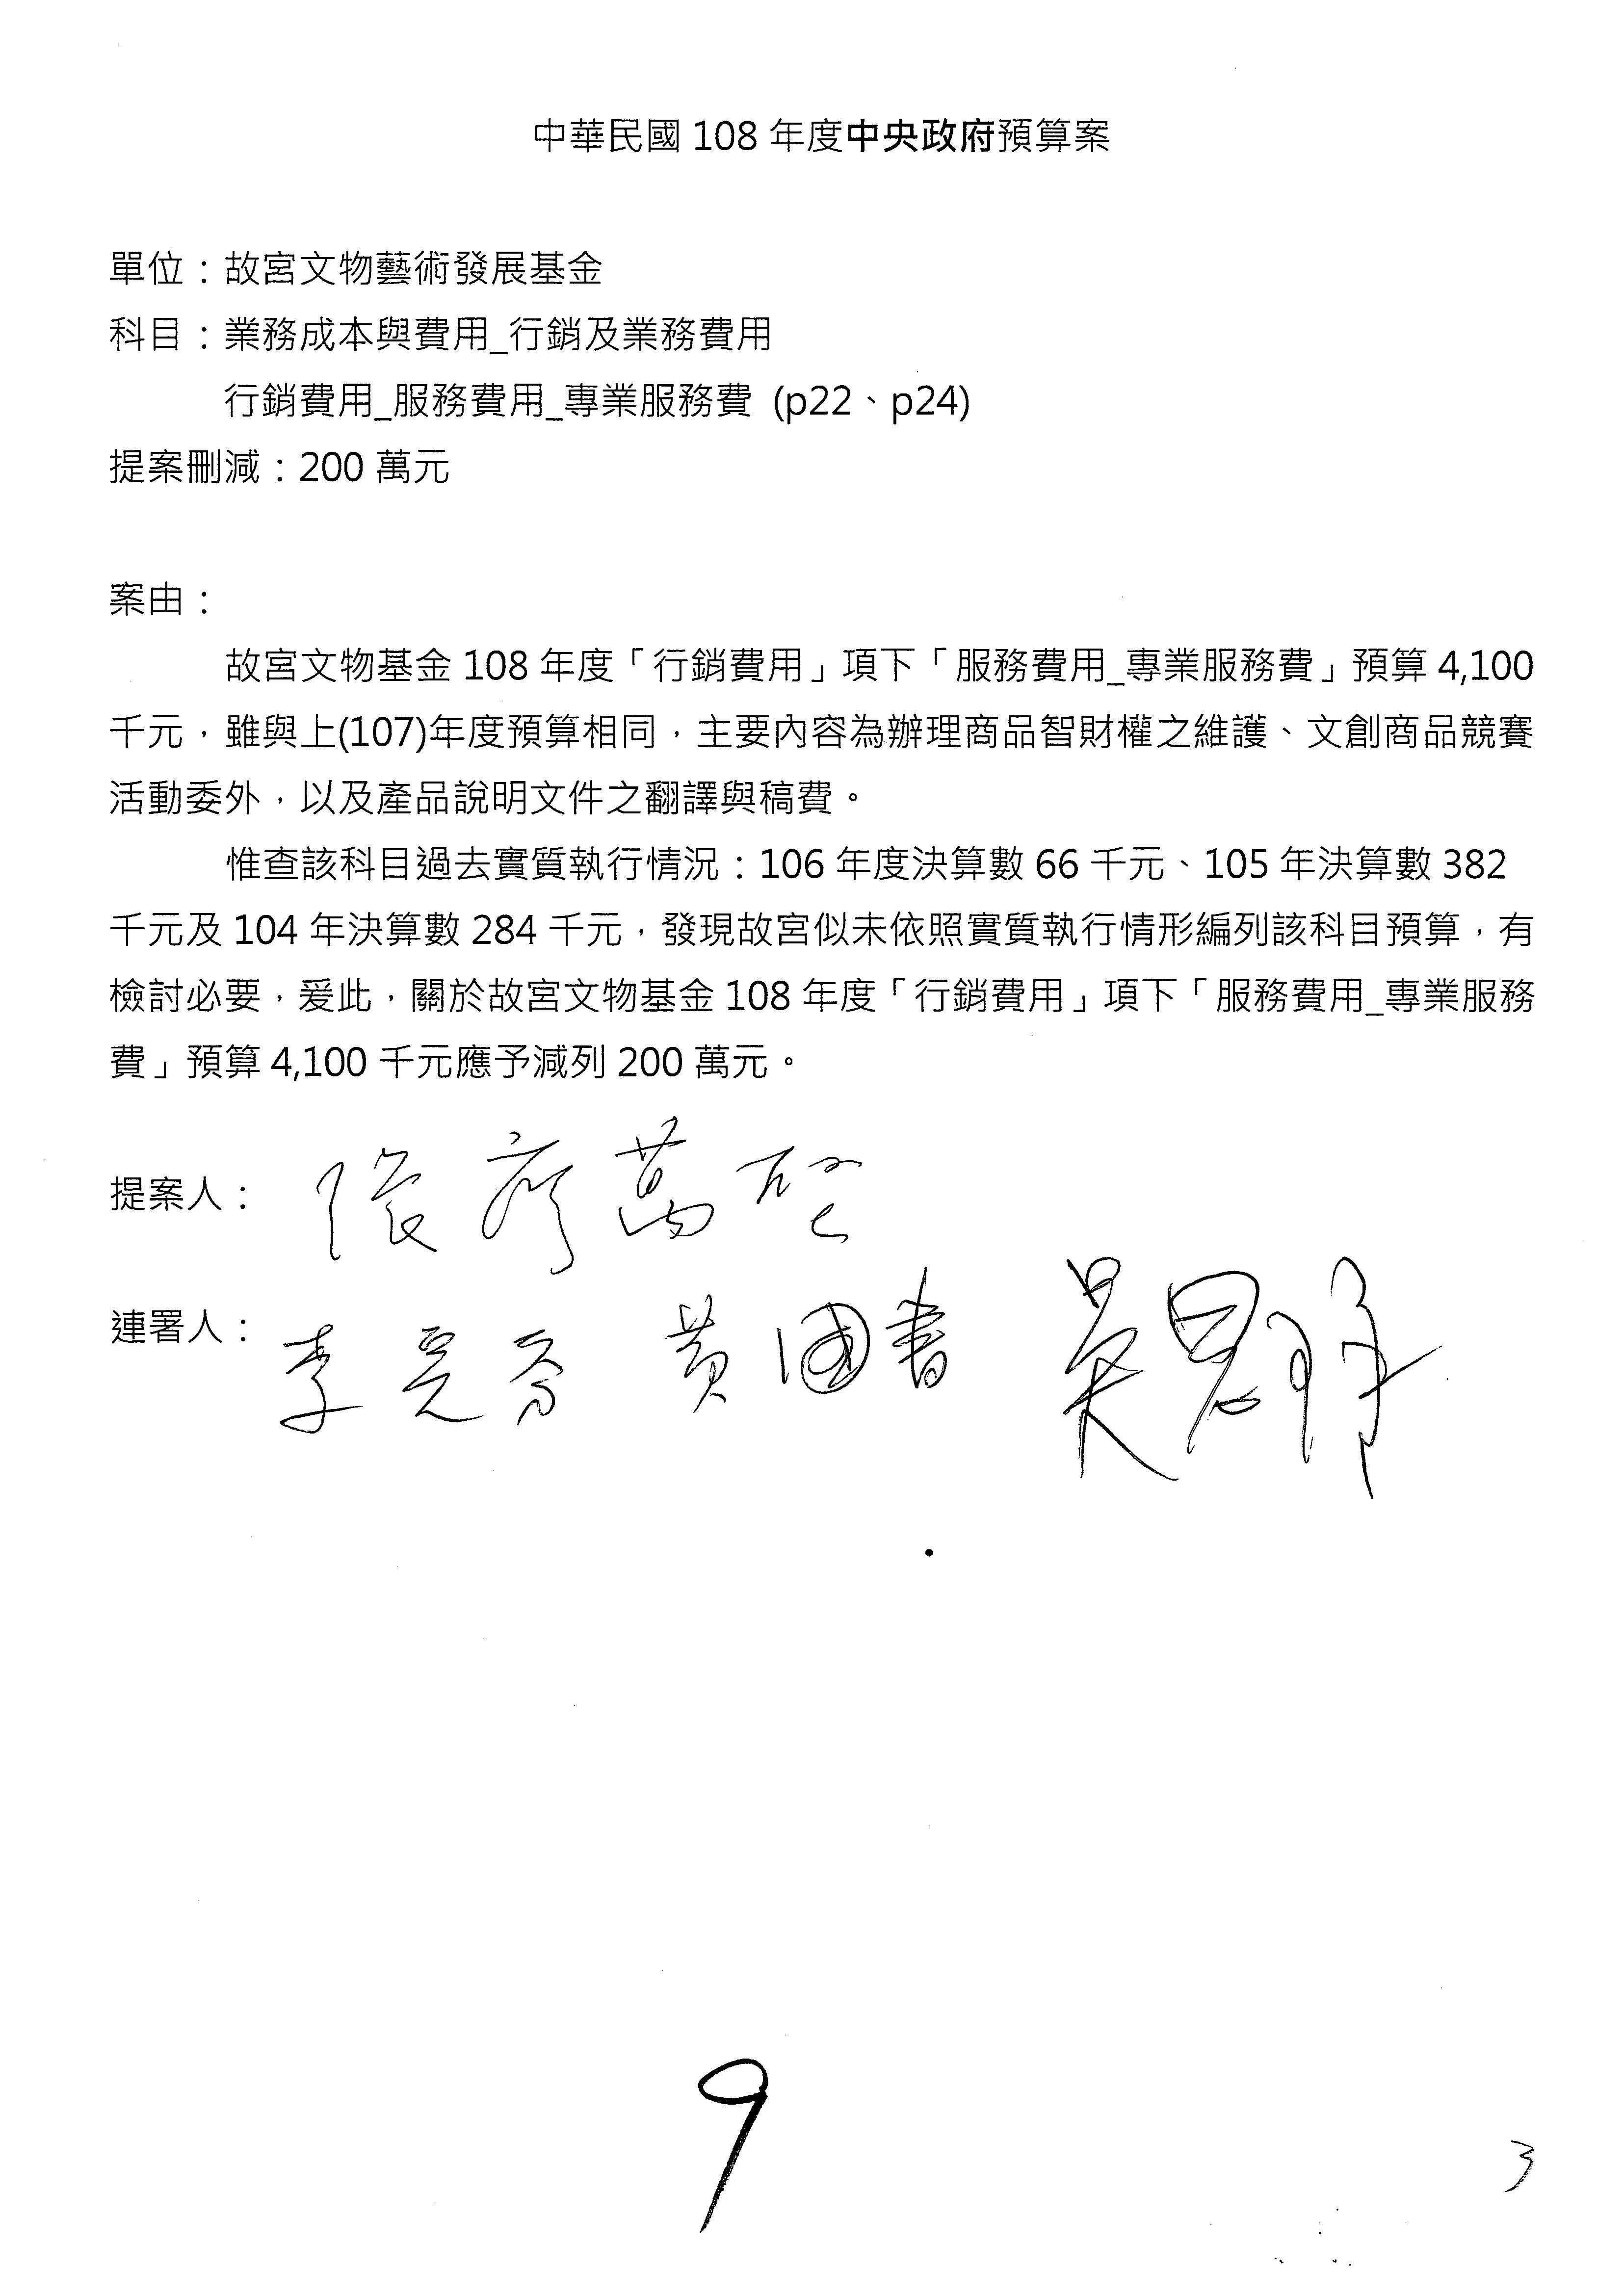 中華民國 108 年度中央政府預算案
單位：故宮文物藝術發展基金
科目：業務成本與費用_行銷及業務費用
行銷費用_服務費用_專業服務費 (p22、p24)
提案刪減：200 萬元
案由：
故宮文物基金 108 年度「行銷費用」項下「服務費用_專業服務費」預算 4,100
千元，雖與上(107)年度預算相同，主要內容為辦理商品智財權之維護、文創商品競賽
活動委外，以及產品說明文件之翻譯與稿費。
惟查該科目過去實質執行情況：106 年度決算數 66 千元、105 年決算數 382
千元及 104 年決算數 284 千元，發現故宮似未依照實質執行情形編列該科目預算，有
檢討必要，爰此，關於故宮文物基金 108 年度「行銷費用」項下「服務費用_專業服務
費」預算 4,100 千元應予減列 200 萬元。
提案人： 張廖萬堅
連署人： 李 黃國書 吳思瑤
9
3